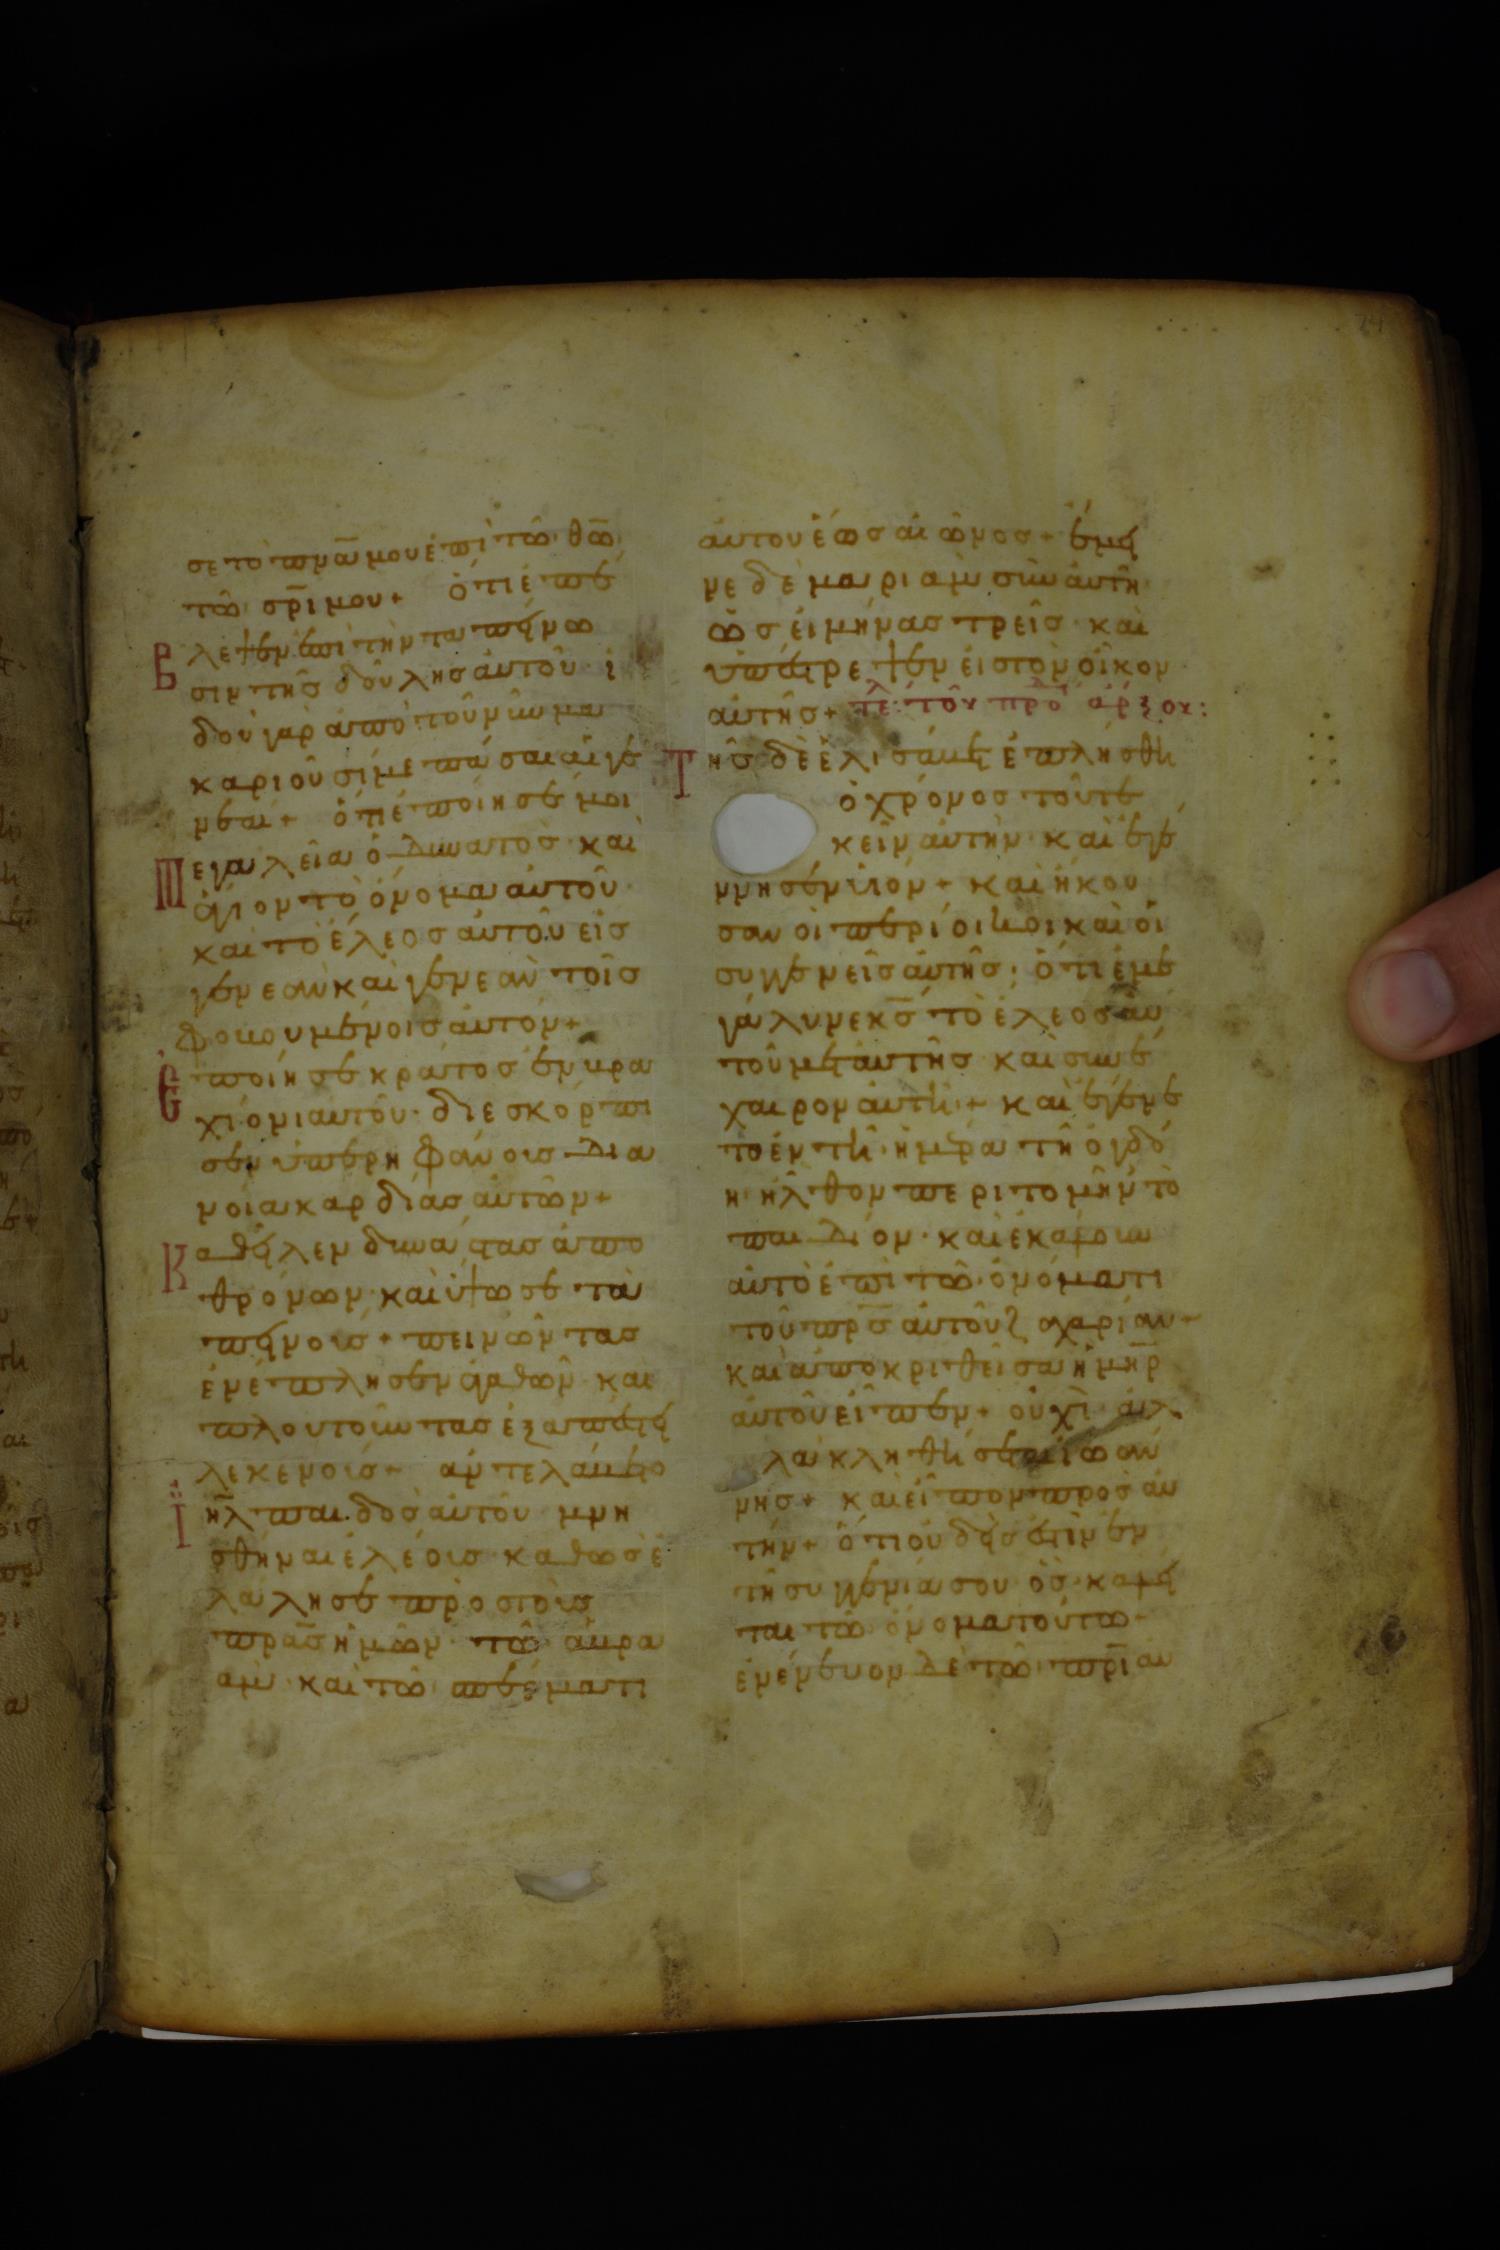 σε τὸ πν̅α̅ μου ἐπὶ τῶ θ̅ω̅
τῶ σ̅ρ̅ι μου + ὅτι ἐπέ
βλεψεν ἐπὶ τὴν ταπείνω
σιν τῆς δούλης αὐτοῦ · ἰ
δοὺ γὰρ ἀπὸ τοῦ νῦν μα
καριοῦσί με πᾶσαι αἱ γε
νεαὶ + ὅτι ἐποίησέ μοι
μεγαλεῖα ὁ δυνατὸς · καὶ
ἅγιον τὸ ὄνομα αὐτοῦ ·
καὶ τὸ ἔλεος αὐτοῦ εἰς
γενεὰν καὶ γενεὰν τοῖς
φοβουμένοις αὐτόν +
ἐποίησε κράτος ἐν βρα
χίονι αὐτοῦ · διεσκόρπι
σεν ὑπερηφάνους δια
νοία καρδίας αὐτῶν +
καθεῖλεν δυνάστας ἀπὸ
θρόνων · καὶ ὕψωσε τα
πεινούς + πεινῶντας
ἐνέπλησεν ἀγαθῶν · καὶ
πλουτοῦντας ἐξαπέστει
λε κενούς + ἀντελάβετο
ι̅η̅λ̅ παιδὸς αὐτοῦ μνη
σθῆναι ἐλέους · καθὼς ἐ
λάλησε πρὸς τοὺς
π̅ρ̅α̅ς ἡμῶν · τῶ ἁβρα
ὰμ · καὶ τῶ σπέρματι
αὐτοῦ ἕως αἰῶνος + ἔμει
νε δὲ μαριὰμ σὺν αὐτῆ
ὡσεὶ μῆνας τρεῖς · καὶ
ὑπέστρεψεν εἰς τὸν οἶκον
αὐτῆς + τε̅λ̅ : τοῦ προδ άρξου :
Τῆς δὲ ἐλισάβετ ἐπλήσθη
ὁ χρόνος τοῦ τε
κεῖν αὐτὴν · καὶ ἐγέ
ννησεν υἱόν + καὶ ἤκου
σαν οἱ περίοικοι καὶ οἱ
συγγενεῖς αὐτῆς · ὅτι ἐμε
γάλυνε κ̅ς̅ τὸ ἔλεος αὐ
τοῦ μετ' αὐτῆς · καὶ συνέ
χαιρον αὐτῆ + καὶ ἐγένε
το ἐν τῆ ἡμέρα τῆ ὀγδό
η ἦλθον περιτομῆν τὸ
παιδίον · καὶ ἐκάλουν
αὐτὸ ἐπὶ τῶ ὀνόματι
τοῦ π̅ρ̅ς̅ αὐτοῦ ζαχαρίαν +
καὶ ἀποκριθεῖσα ἡ μ̅η̅ρ̅
αὐτοῦ εἶπεν + οὐχὶ ἀλ
λὰ κληθήσεται ἰωάν
νης + καὶ εἶπον πρὸς αὐ
τὴν + ὅτι οὐδεὶς ἐστὶν ἐν
τῆ συγγενεία σου ὃς καλεῖ
ται τῶ ὀνόματι τούτω +
ἐνένευον δὲ τῶ π̅ρ̅ι̅ αὐ